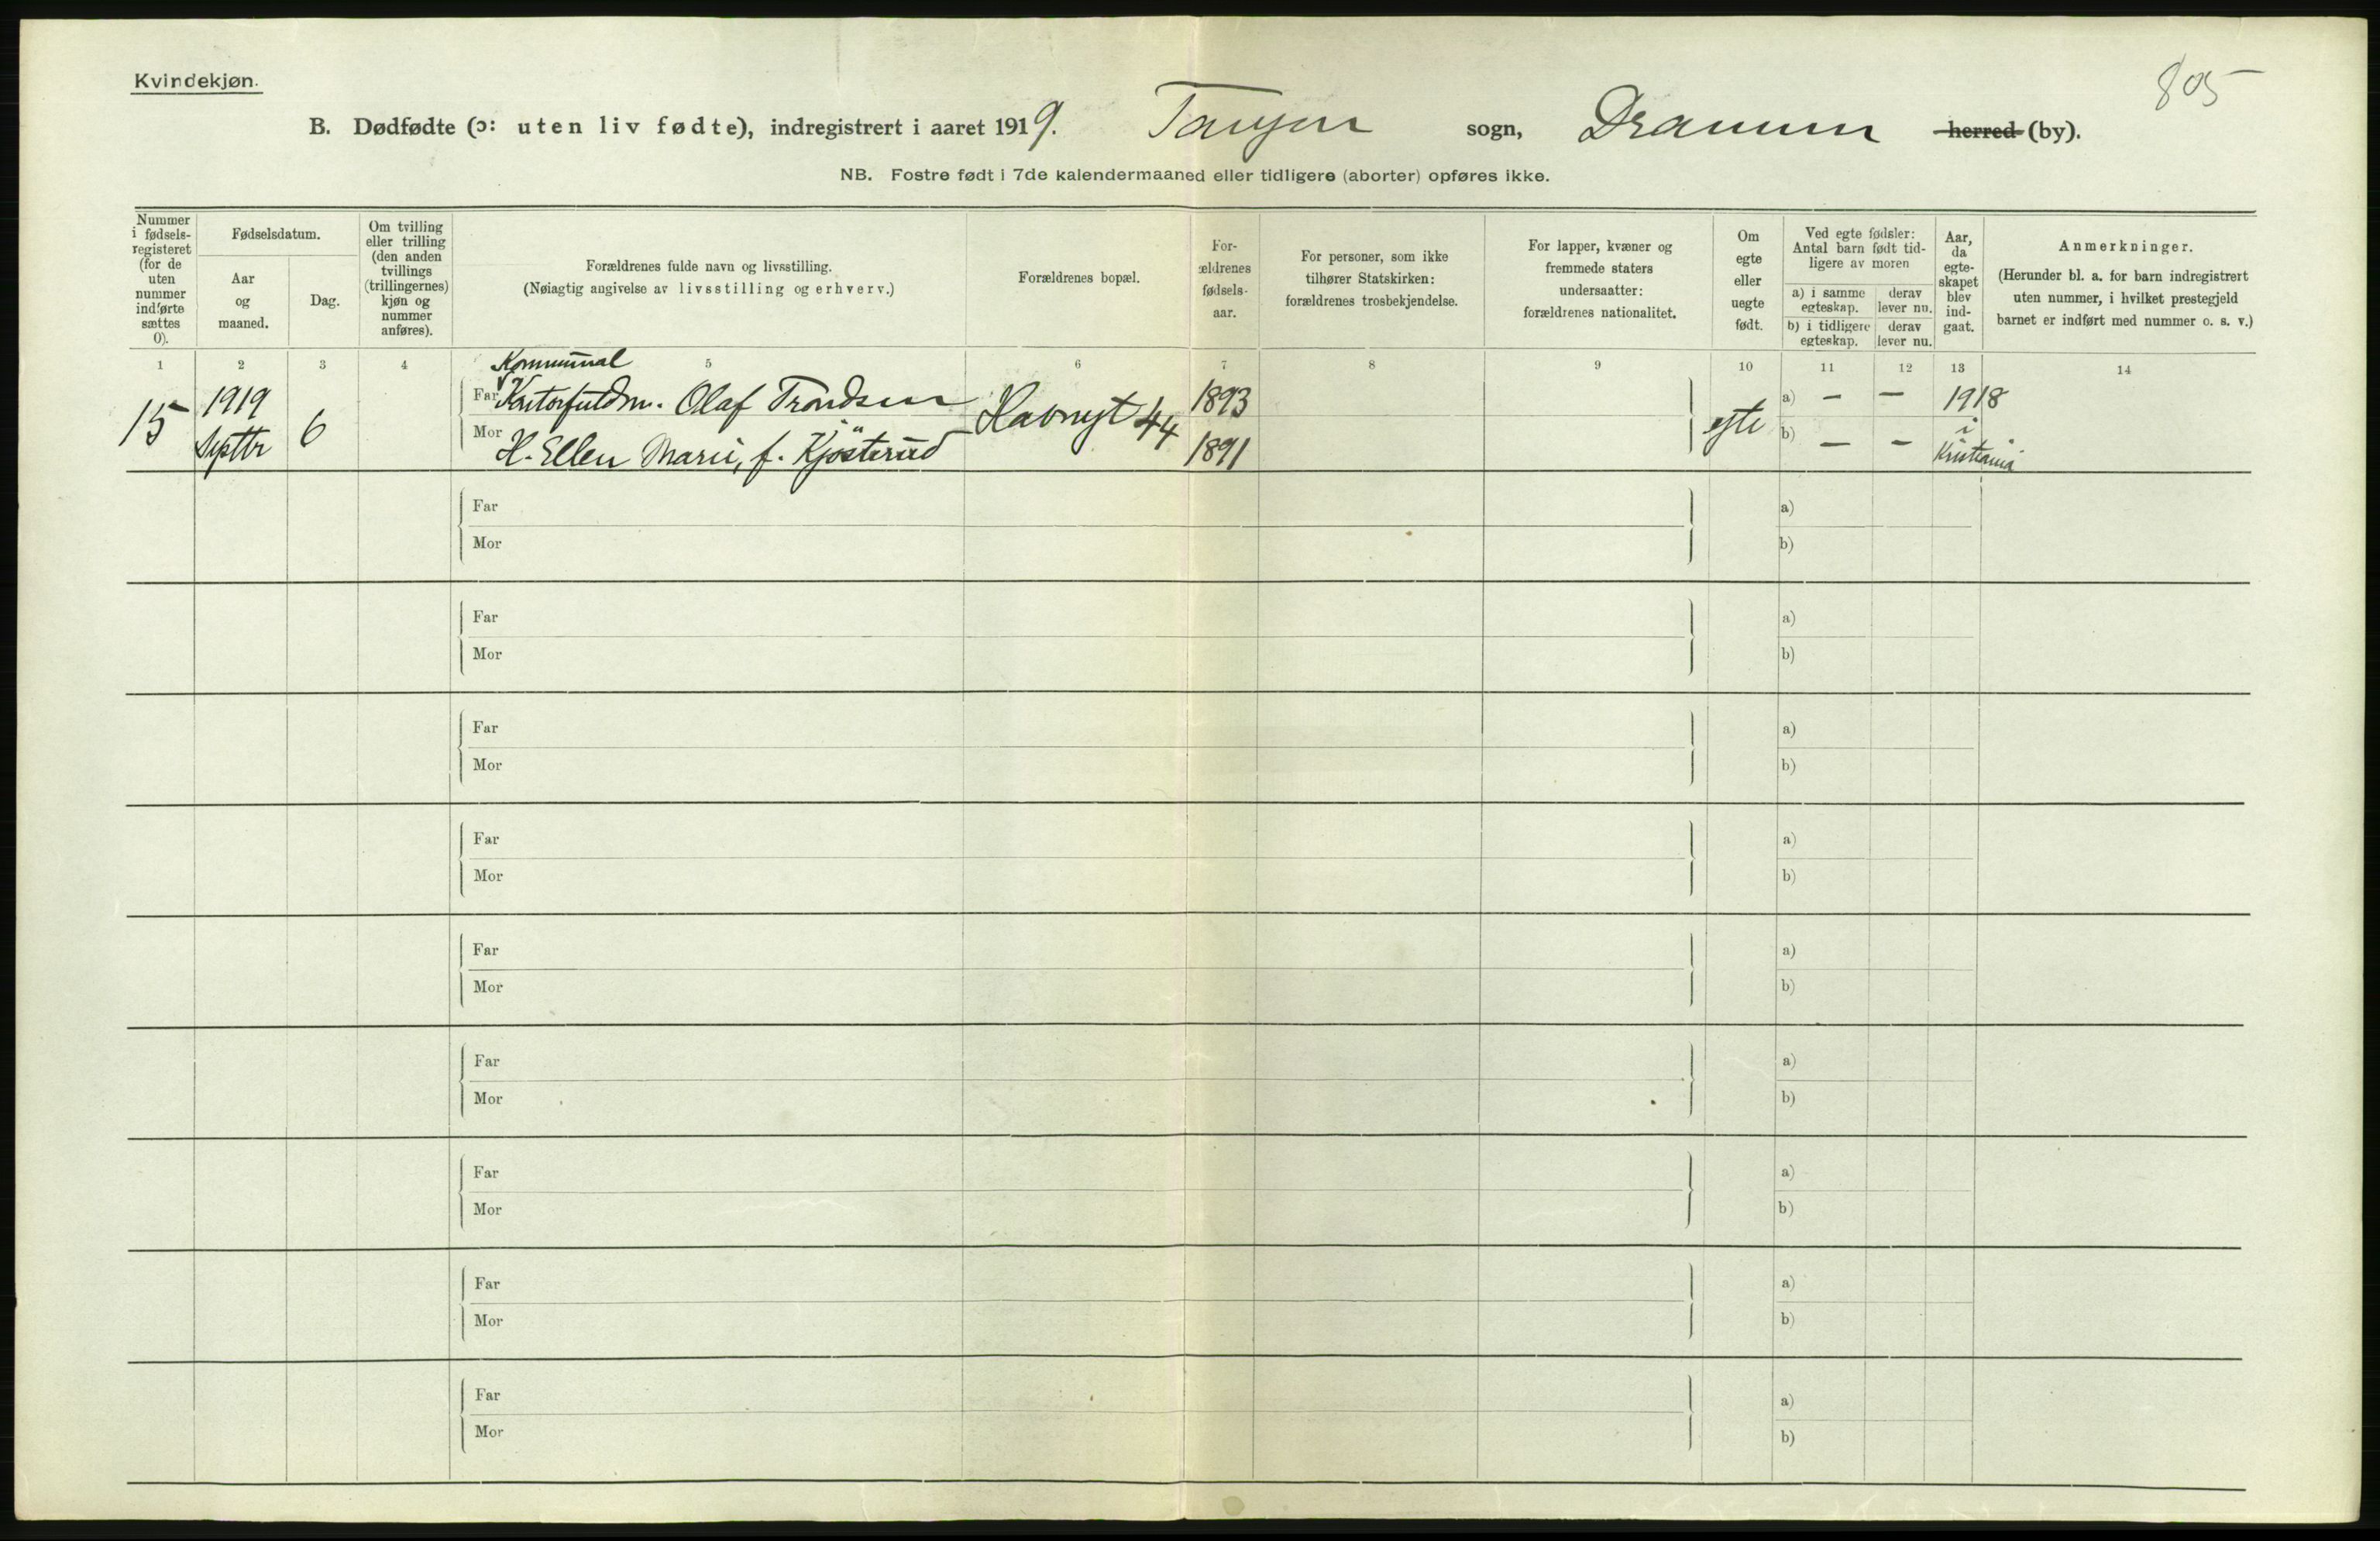 Kvindekjøn.
805
B. Dødfødte (ɔ: uten liv fødte), indregistrert i aaret 1919. Tangen sogn, Drammen herred (by).
NB. Fostre født i 7de kalendermaaned eller tidligere (aborter) opføres ikke.
Nummer
i fødsels-
registeret
(for de
uten
nummer
indførte
sættes
0).
Fødselsdatum.
Aar
og
maaned.
Dag.
Om tvilling
eller trilling
(den anden
tvillings
(trillingernes)
kjøn og
nummer
anføres).
Forældrenes fulde navn og livsstilling.
(Nøiagtig angivelse av livsstilling og erhverv.)
Forældrenes bopæl.
For-
ældrenes
fødsels-
aar.
For personer, som ikke
tilhører Statskirken:
forældrenes trosbekjendelse.
For lapper, kvæner og
fremmede staters
undersaatter:
forældrenes nationalitet.
Om
egte
eller
uegte
født.
Ved egte fødsler:
Antal barn født tid-
ligere av moren
a) i samme
egteskap.
derav
lever nu.
b) i tidligere
egteskap.
derav
lever nu.
Aar,
da
egte-
skapet
blev
ind-
gaat.
Anmerkninger.
(Herunder bl. a. for barn indregistrert
uten nummer, i hvilket prestegjeld
barnet er indført med nummer o. s. v.)
1 2 3 4 5 6 7 8 9 10 11 12 13 14
15
1919
Septbr
6
Kommunal
Far Kontorfuldm. Olaf Trondsen
Mor H. Ellen Marie, f. Kjösterud
Havnegt 44
1893
1891
egte
a) — —
b) — —
1918
i
Kristiania
Far
Mor
a)
b)
Far
Mor
a)
b)
Far
Mor
a)
b)
Far
Mor
a)
b)
Far
Mor
a)
b)
Far
Mor
a)
b)
Far
Mor
a)
b)
Far
Mor
a)
b)
Far
Mor
a)
b)